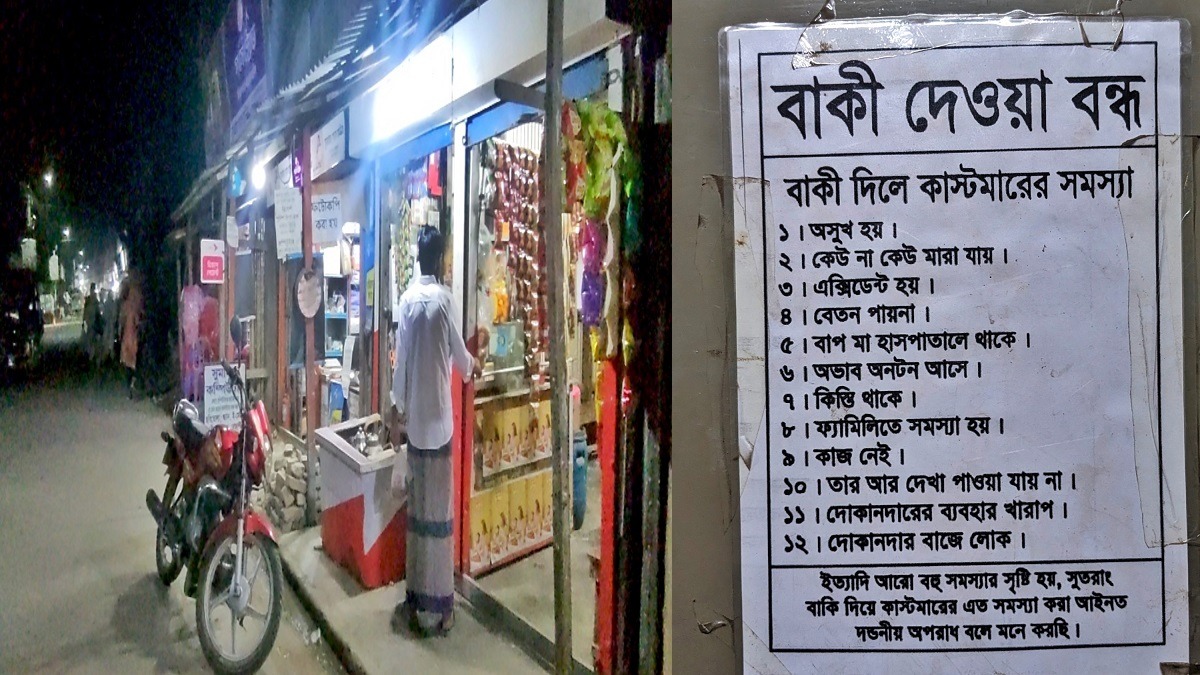 ফটোকপি
করা হয়
বাকী দেওয়া বন্ধ
বাকী দিলে কাস্টমারের সমস্যা
১। অসুখ হয়।
২। কেউ না কেউ মারা যায়।
৩। এক্সিডেন্ট হয়।
৪। বেতন পায়না।
৫। বাপ মা হাসপাতালে থাকে।
৬। অভাব অনটন আসে।
৭। কিস্তি থাকে।
৮। ফ্যামিলিতে সমস্যা হয়।
৯। কাজ নেই।
১০। তার আর দেখা পাওয়া যায় না।
১১। দোকানদারের ব্যবহার খারাপ।
১২। দোকানদার বাজে লোক।
ইত্যাদি আরো বহু সমস্যার সৃষ্টি হয়, সুতরাং
বাকি দিয়ে কাস্টমারের এত সমস্যা করা আইনত
দন্ডনীয় অপরাধ বলে মনে করছি।